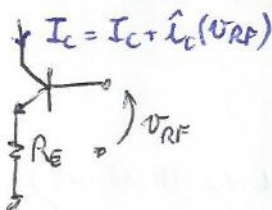 I_C = I_C + î_c(v_RF)
R_E
v_RF